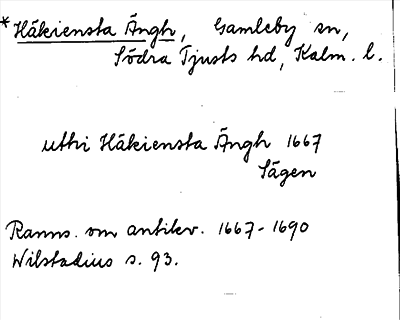 *Häkiensta Ängh, Gamleby sn,
Södra Tjusts hd, Kalm. l.
uthi Häkiensta Ängh 1667
Sägen
Ranns. om antikv. 1667-1690
Wilstadius s. 93.